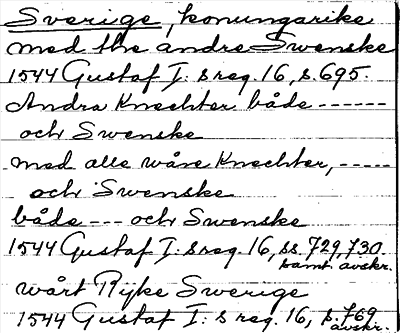 Sverige, konungarike
med the andre Swenske
1544 Gustaf I: s reg. 16, s. 695.
Andra Knechter både ------
och Swenske
med alle wåre Knechter, -----
och Swenske
både --- och Swenske
1544 Gustaf I: s reg. 16, ss. 729, 730
samt avskr.
wårt Rijke Swerige
1544 Gustaf I: s reg. 16, s. 769
avskr.